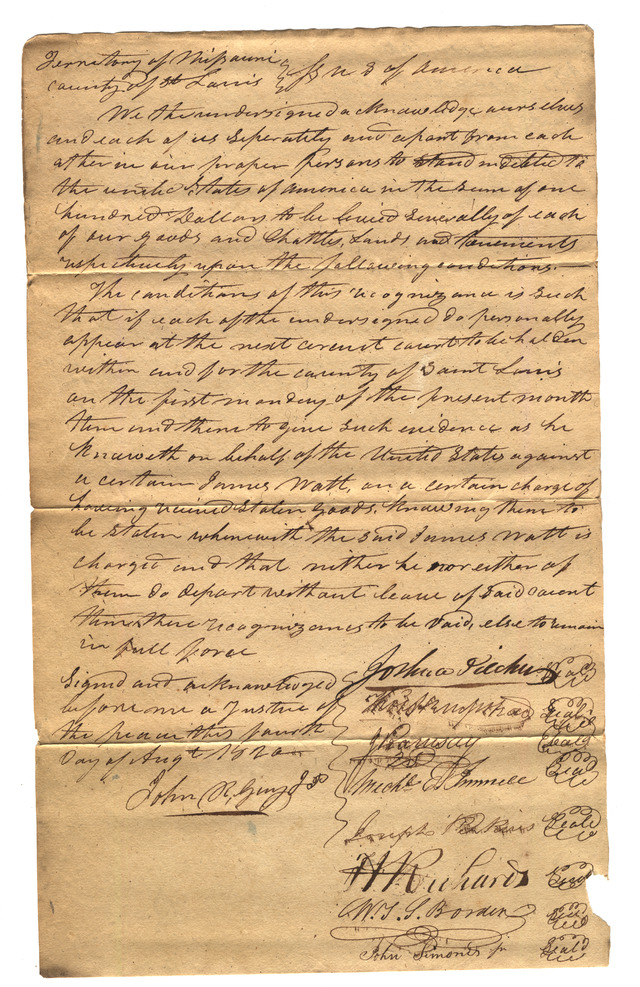 Territory of Missouri
County of St Louis } ss U S of America
We the undersigned acknowledge ourselves
and each of us Seperately and apart from each
other in our proper Persons to stand indebted to
the unite States of america in the sum of one
hundred Dollars to be levied Severally of each
of our goods and Chattles, Lands and tenements
respectively upon the following conditions.
The conditions of this recognizance is such
that if each of the undersigned do personally
appear at the next circuit court to be holden
within and for the county of Saint Louis
on the first monday of the present month
then and there to give such evidence as he
Knoweth on behalf of the United States against
a certain James Watt, on a certain charge of
having recived Stolen goods, Knowing them to
be Stolen wherewith the said James Watt is
charged and that nither he nor either of
them do depart without leave of said court
then there recognizances to be void, else to remain
in full force
Signed and acknowledged
before me a Justice of
the peace this fourth
Day of Augt 1820
John R, Guy J P
Joshua Seal
Seald
J Ramsay Seald
Seald
Joseph Perkins Seald
H Richards Seald
Wm S. G. Borden Seald
John Simonds jr Seald